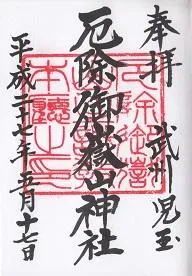 奉拝
武州児玉
厄除御嶽山神社
平成二十七年五月十七日